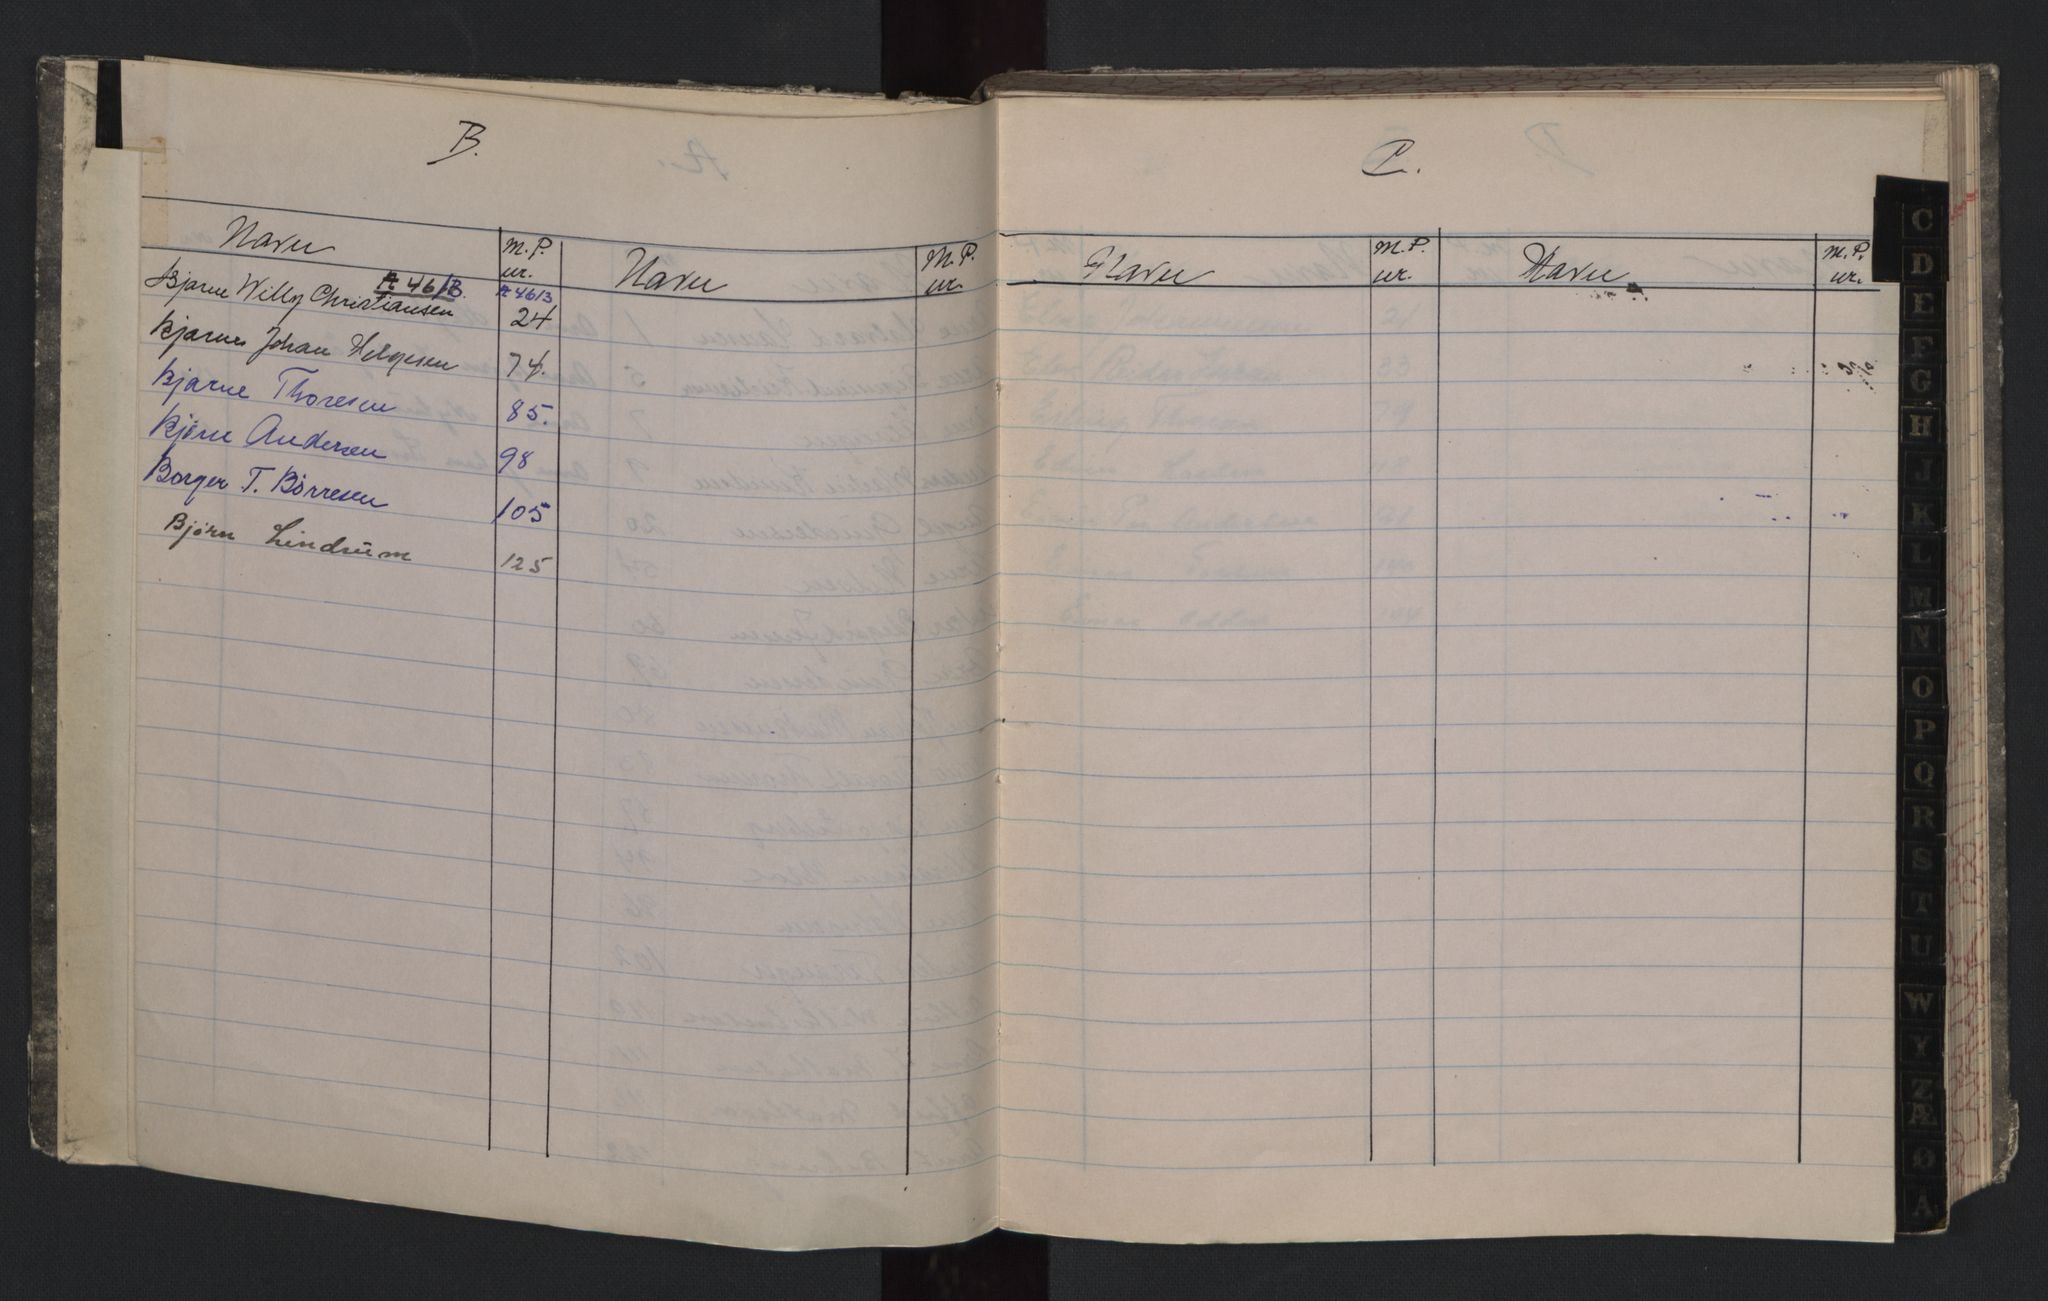 B.
Navn M.P. nr. Navn M.P. nr.
A 461B. A 4613
Bjarne Willy Christiansen 24
Bjarne Johan Helgesen 74.
Bjarne Thoresen 85.
Bjørn Andersen 98
Borger T. Børresen 105
Bjørn Lindrum 125
C.
Navn M.P. nr. Navn M.P. nr.
C
D
E
F
G
H
J
K
L
M
N
O
P
Q
R
S
T
U
W
Y
Z
Æ
Ø
Å